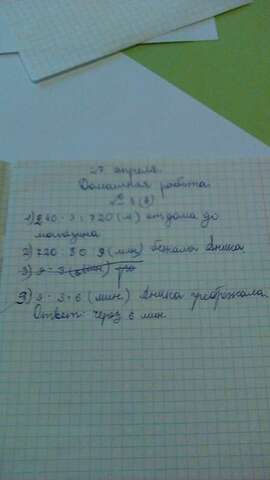 27 апреля.
Домашная работа.
№ 3 (3)
1) 240 · 3 = 720 (м) от дома до
магазина
2) 720 : 80 = 9 (мин) бежала Яника
3) 9 - 3
3) 9 - 3 = 6 (мин) Яника
Ответ: через 6 мин